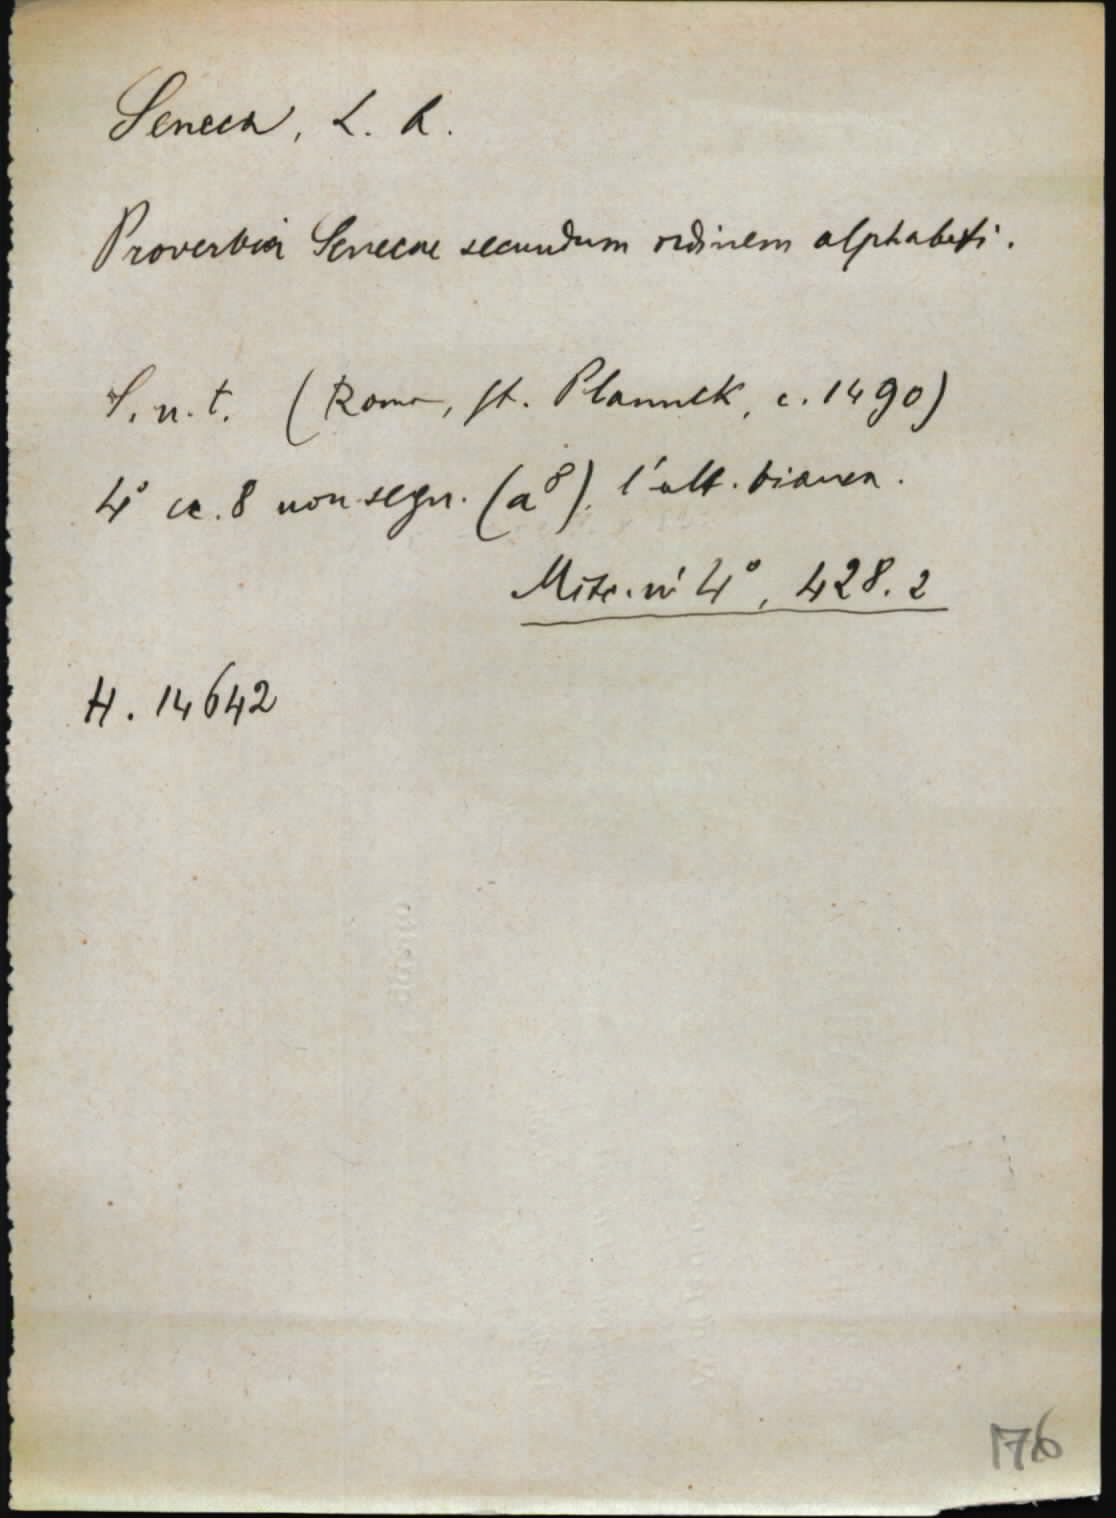 Seneca, L. A.
Proverbia Senecae secundum ordinem alphabeti.
S. n. t. (Roma, St. Plannck, c. 1490)
4° cc. 8 non segn. (a⁸). l'ult. bianca.
Misc. in 4°, 428. 2
H. 14642
176